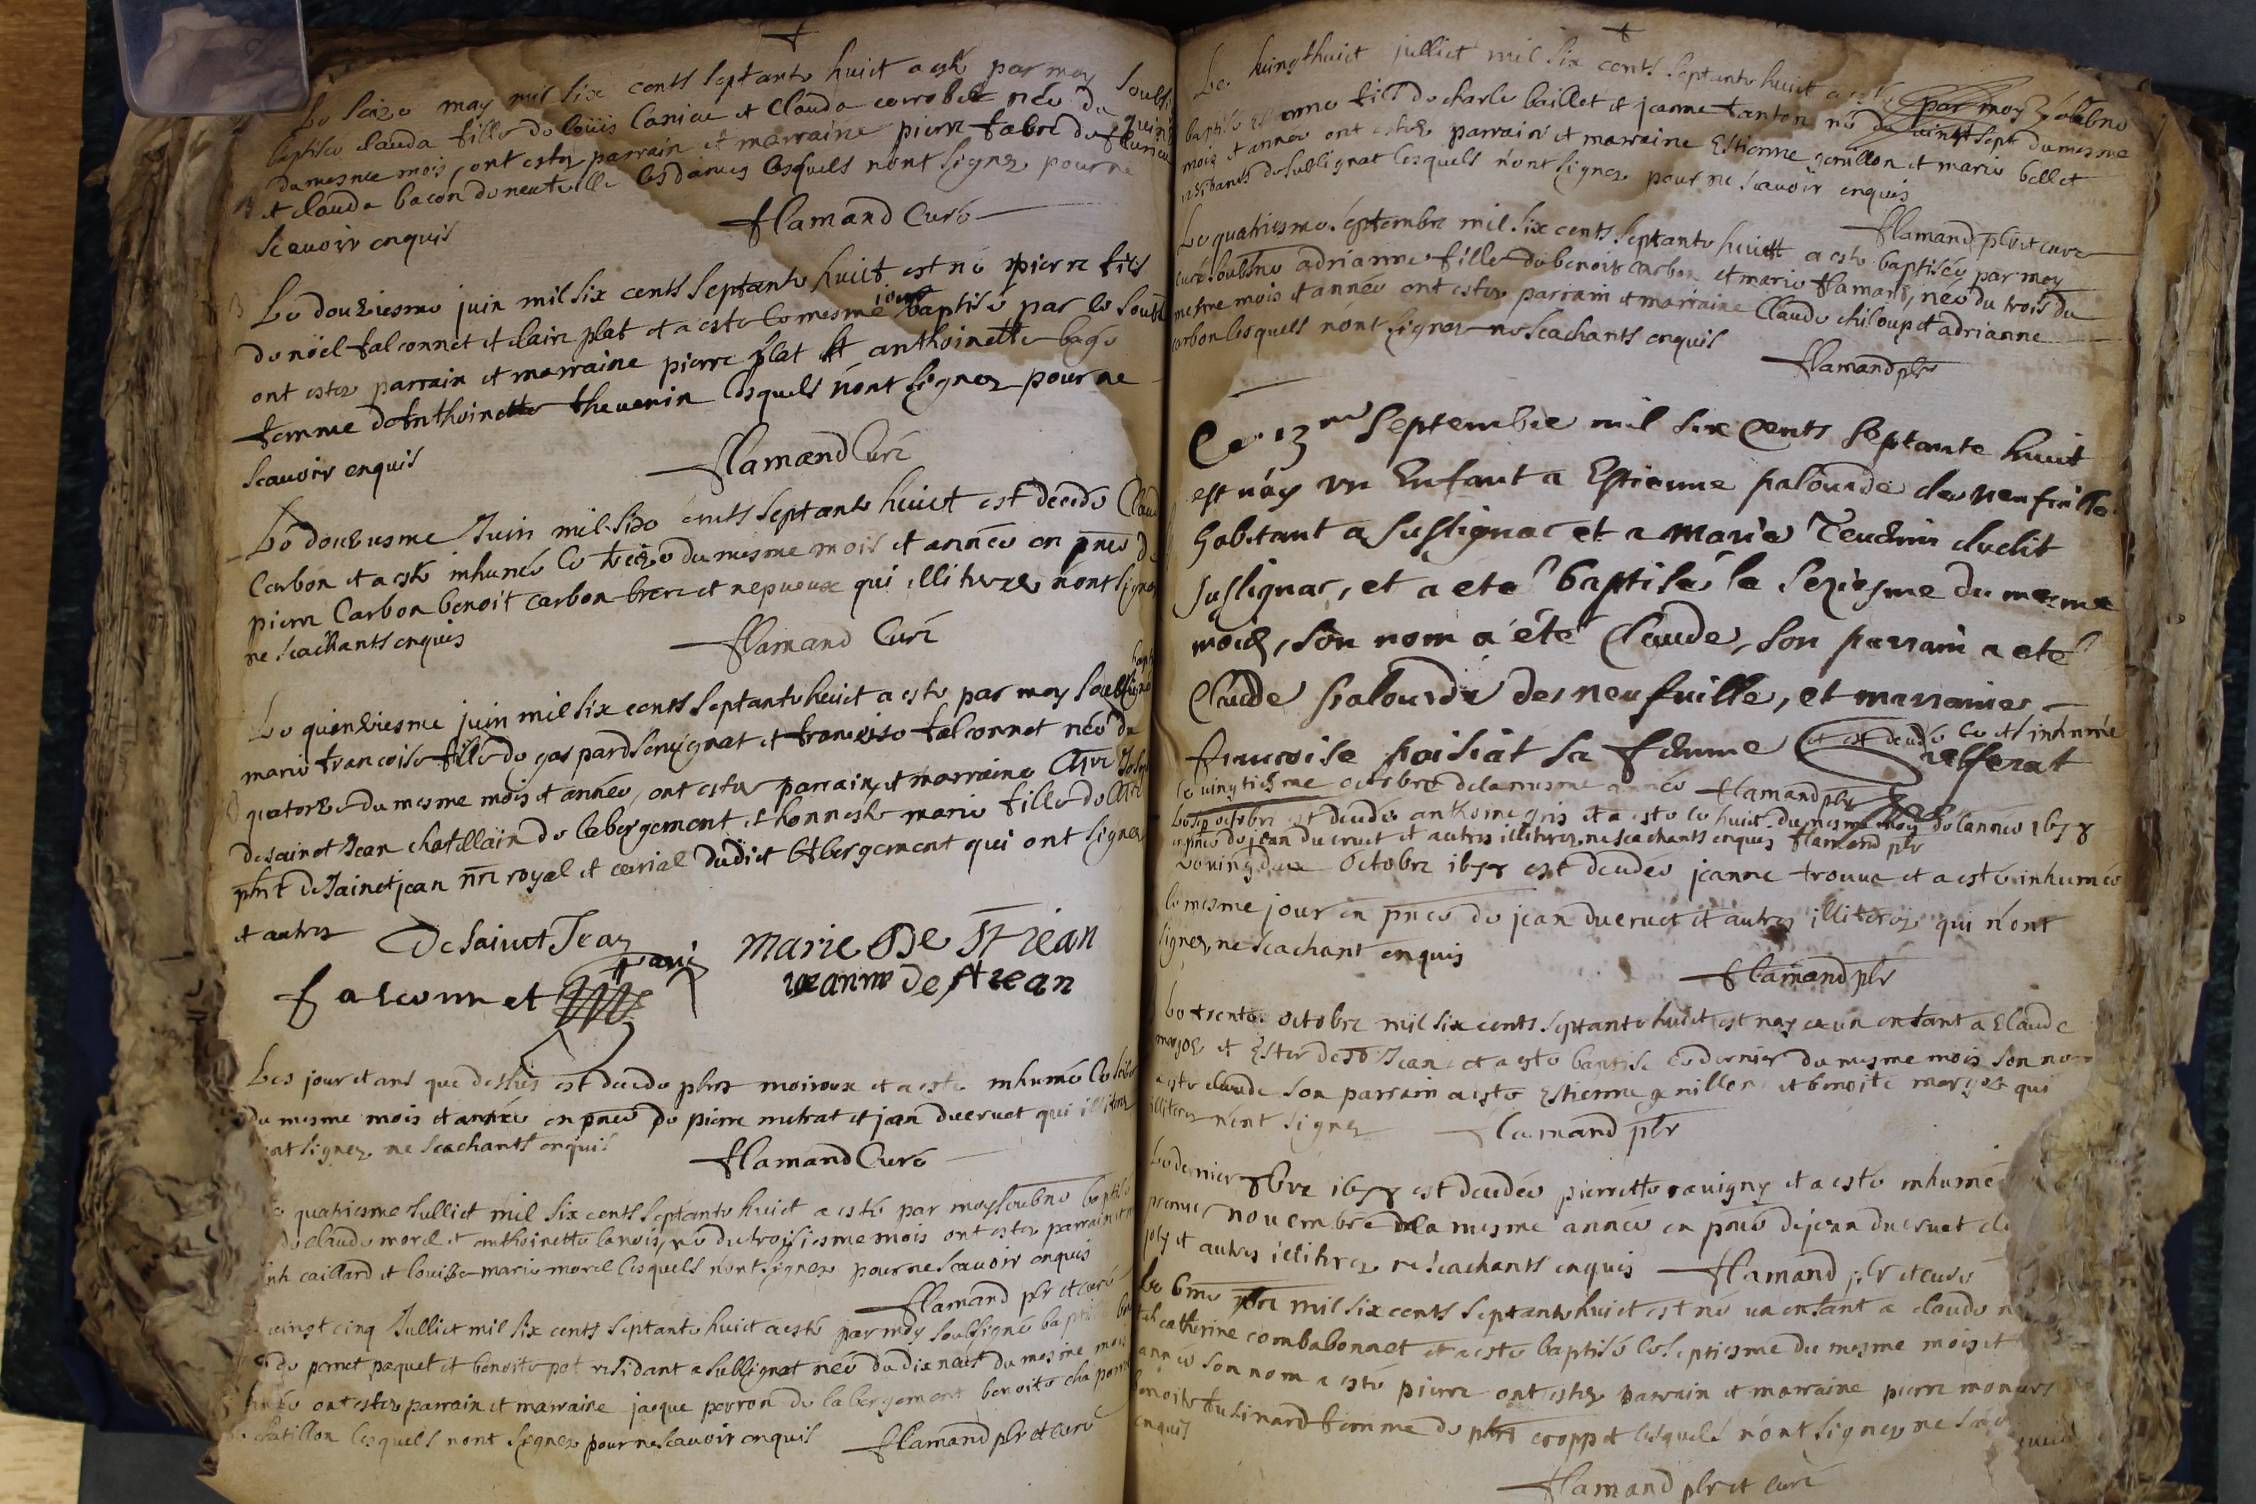 Le seize may mil six cents septante huict a esté par moy soubsi
baptisée clauda fille de loüis caniac et clauda corrobet née du quin
du mesme mois, ont estez parrain et marraine pierre fabre de flurieu
et clauda bacon de neufville les dames lesquels n'ont signez pour ne
scavoir enquis
flamand Curé
Le douziesme juin mil six cents septante huict est né pierre fils
de nöel falconnet et claire plat et a esté le mesme jour baptisé par le soub
ont estez parrain et marraine pierre plat et anthoinette bage
femme d'Anthoinette thevenin lesquels n'ont signez pour ne
scavoir enquis
flamand Curé
Le douziesme Juin mil six cents septante huict est decedé Claud
Carbon et a esté inhumé le treize du mesme mois et année en pnce de
pierre Carbon benoit carbon frere et nepveux qui illiterez n'ont signé
ne scachants enquis
flamand Curé
Le quinziesme juin mil six cents septante huict a esté par moy soubsigné bapt
marie francoise fille de gaspard senignat et francoise falconnet née du
quatorze du mesme mois et année, ont estez parrain et marraine Mre
de sainct Jean chatellain de labergement et honneste marie fille de Mre
phi de Sainct jean nre royal et curial dudict Abergement qui ont signez
et autres
De Sainct Jean
Marie De St iean
falconnet
ieanne de st iean
Les jour et ans que dessus est decedé moiroux et a esté inhumé le
du mesme mois et année en pnce de pierre metrat et jean ducruet qui illiterez
n'ont signez ne scachants enquis
flamand Curé
quatriesme Julliet mil six cents septante huict a esté par moy soubsne baptisé
de claude morel et anthoinette lanois, né du troisiesme mois ont estez parrain et
caillard et louise marie morel lesquels n'ont signez pour ne scavoir enquis
flamand pbr et curé
vingt cinq Julliet mil six cents septante huict a esté par moy soubsigné bapti
de pernet paquet et benoite pot residant a sullignat née du dix neuf du mesme mois
année ont estez parrain et marraine jacque perron de labergement benoite
chatillon lesquels n'ont signez pour ne scavoir enquis
flamand pbr et curé
Le vingthuict julliet mil six cents septante huict a esté par moy soubsne
baptisé Estienne fils de charle baillet et jeanne fanton né du vingt sept du mesme
mois et année ont estez parrain et marraine Estienne genillon et marie bellet
residants de sullignat lesquels n'ont signez pour ne scavoir enquis
flamand pbr et curé
Le quatriesme septembre mil six cents septante huict a esté baptisée par moy
curé soubsne adrianne fille de benoit carbon et marie flamand, née du trois du
mesme mois et année ont estez parrain et marraine Claude chiloup et adrianne
carbon lesquels n'ont signez ne scachants enquis
flamand pbr
Ce 13me Septembre mil six cents septante huict
est náy un Enfant a Estienne palourde de neufville
habitant a sullignac et a Marie Teudrin dudit
sullignac, et a eté baptisé le seziesme du mesme
mois, son nom a été Claude, son parrain a eté
Claude palourde de neufville, et marraine
francoise poisiat sa femme
et est decedé et inhumé
le vingtiesme octobre de la mesme année flamand pbr
octobre est decedé anthoine gris et a esté le huict du mesme mois de l'année 1678
en pnce de jean ducruet et autres illiterez ne scachants enquis flamand pbr
Le vingdeux Octobre 1678 est decedée jeanne trouve et a esté inhumée
le mesme jour en pnce de jean ducruet et autres illiterez qui n'ont
signez ne scachant enquis
flamand pbr
Le trente octobre mil six cents septante huict est nay un enfant a Claude
et Ester de St Jean et a esté baptisé le dernier du mesme mois son nom
a esté claude son parrain a esté Estienne genillon et benoite qui
illiterez n'ont signez
flamand pbr
Le dernier 8bre 1678 est decedée pierrette ravigny et a esté inhumé
premier novembre de la mesme année en pnce de jean ducruet
et autres illiterez ne scachants enquis flamand pbr et curé
Le 6me 9bre mil six cents septante huict est né un enfant a claude
catherine combabonnet et a esté baptisé le septiesme du mesme mois et
année son nom a esté pierre ont estez parrain et marraine pierre
benoite tusinard femme de croppet lesquels n'ont signez ne
enquis
flamand pbr et curé